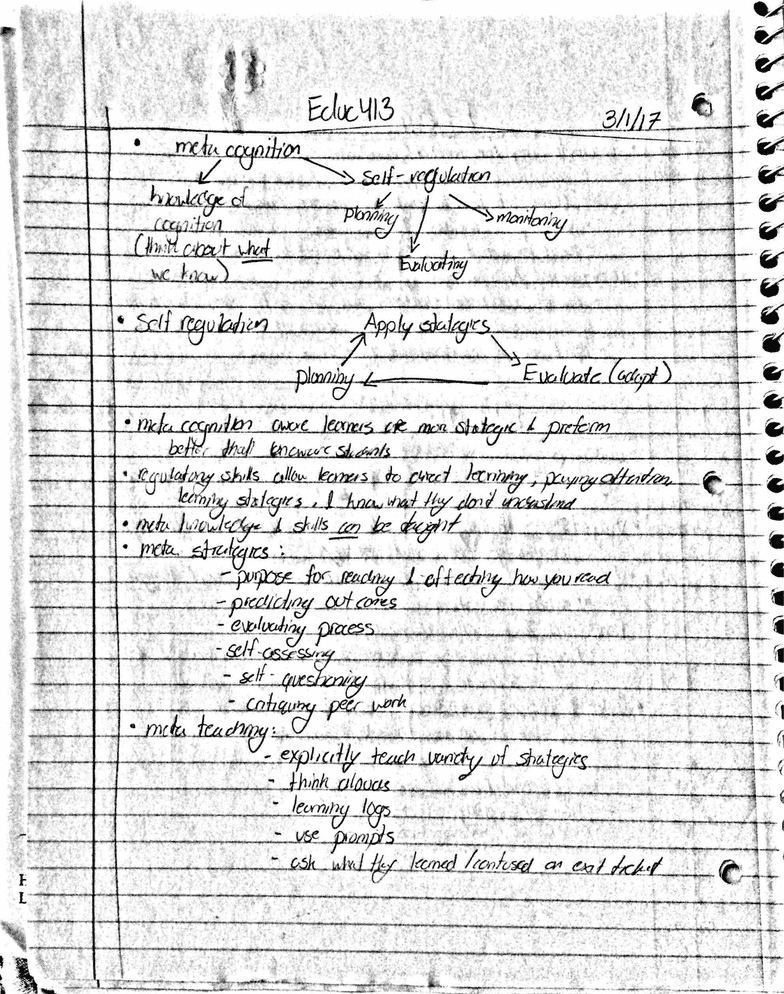 Educ 413
3/1/17
• meta cognition
self-regulation
knowledge of
cognition
(think about what
we know)
planning
monitoring
Evaluating
• Self regulation
Apply stategies
planning
Evaluate (adapt)
• meta cognition aware learners are more strategic & preform
better than unaware students
• regulatory skills allow learners to direct learning, paying attention,
learning stategies, & know what they don't understand
• meta knowledge & skills can be taught
• meta strategies:
- purpose for reading & affecting how you read
- predicting outcomes
- evaluating process
- self-assessing
- self-questioning
- critiquing peer work
• meta teaching:
- explicitly teach variety of strategies
- think alouds
- learning logs
- use prompts
- ask what they learned / confused on exit ticket
H
L